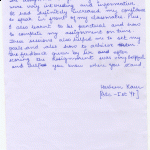 very interesting and informative
It had definitely increased my confidence
to speak in front of my classmates. Plus,
I also learnt to be punctual and how
to complete my assignment on time.
These sessions also helped me to set my
goals and also how to achieve them.
The feedback given by Sir and after
giving the assignment was very helpful
and helped you know where you stand.